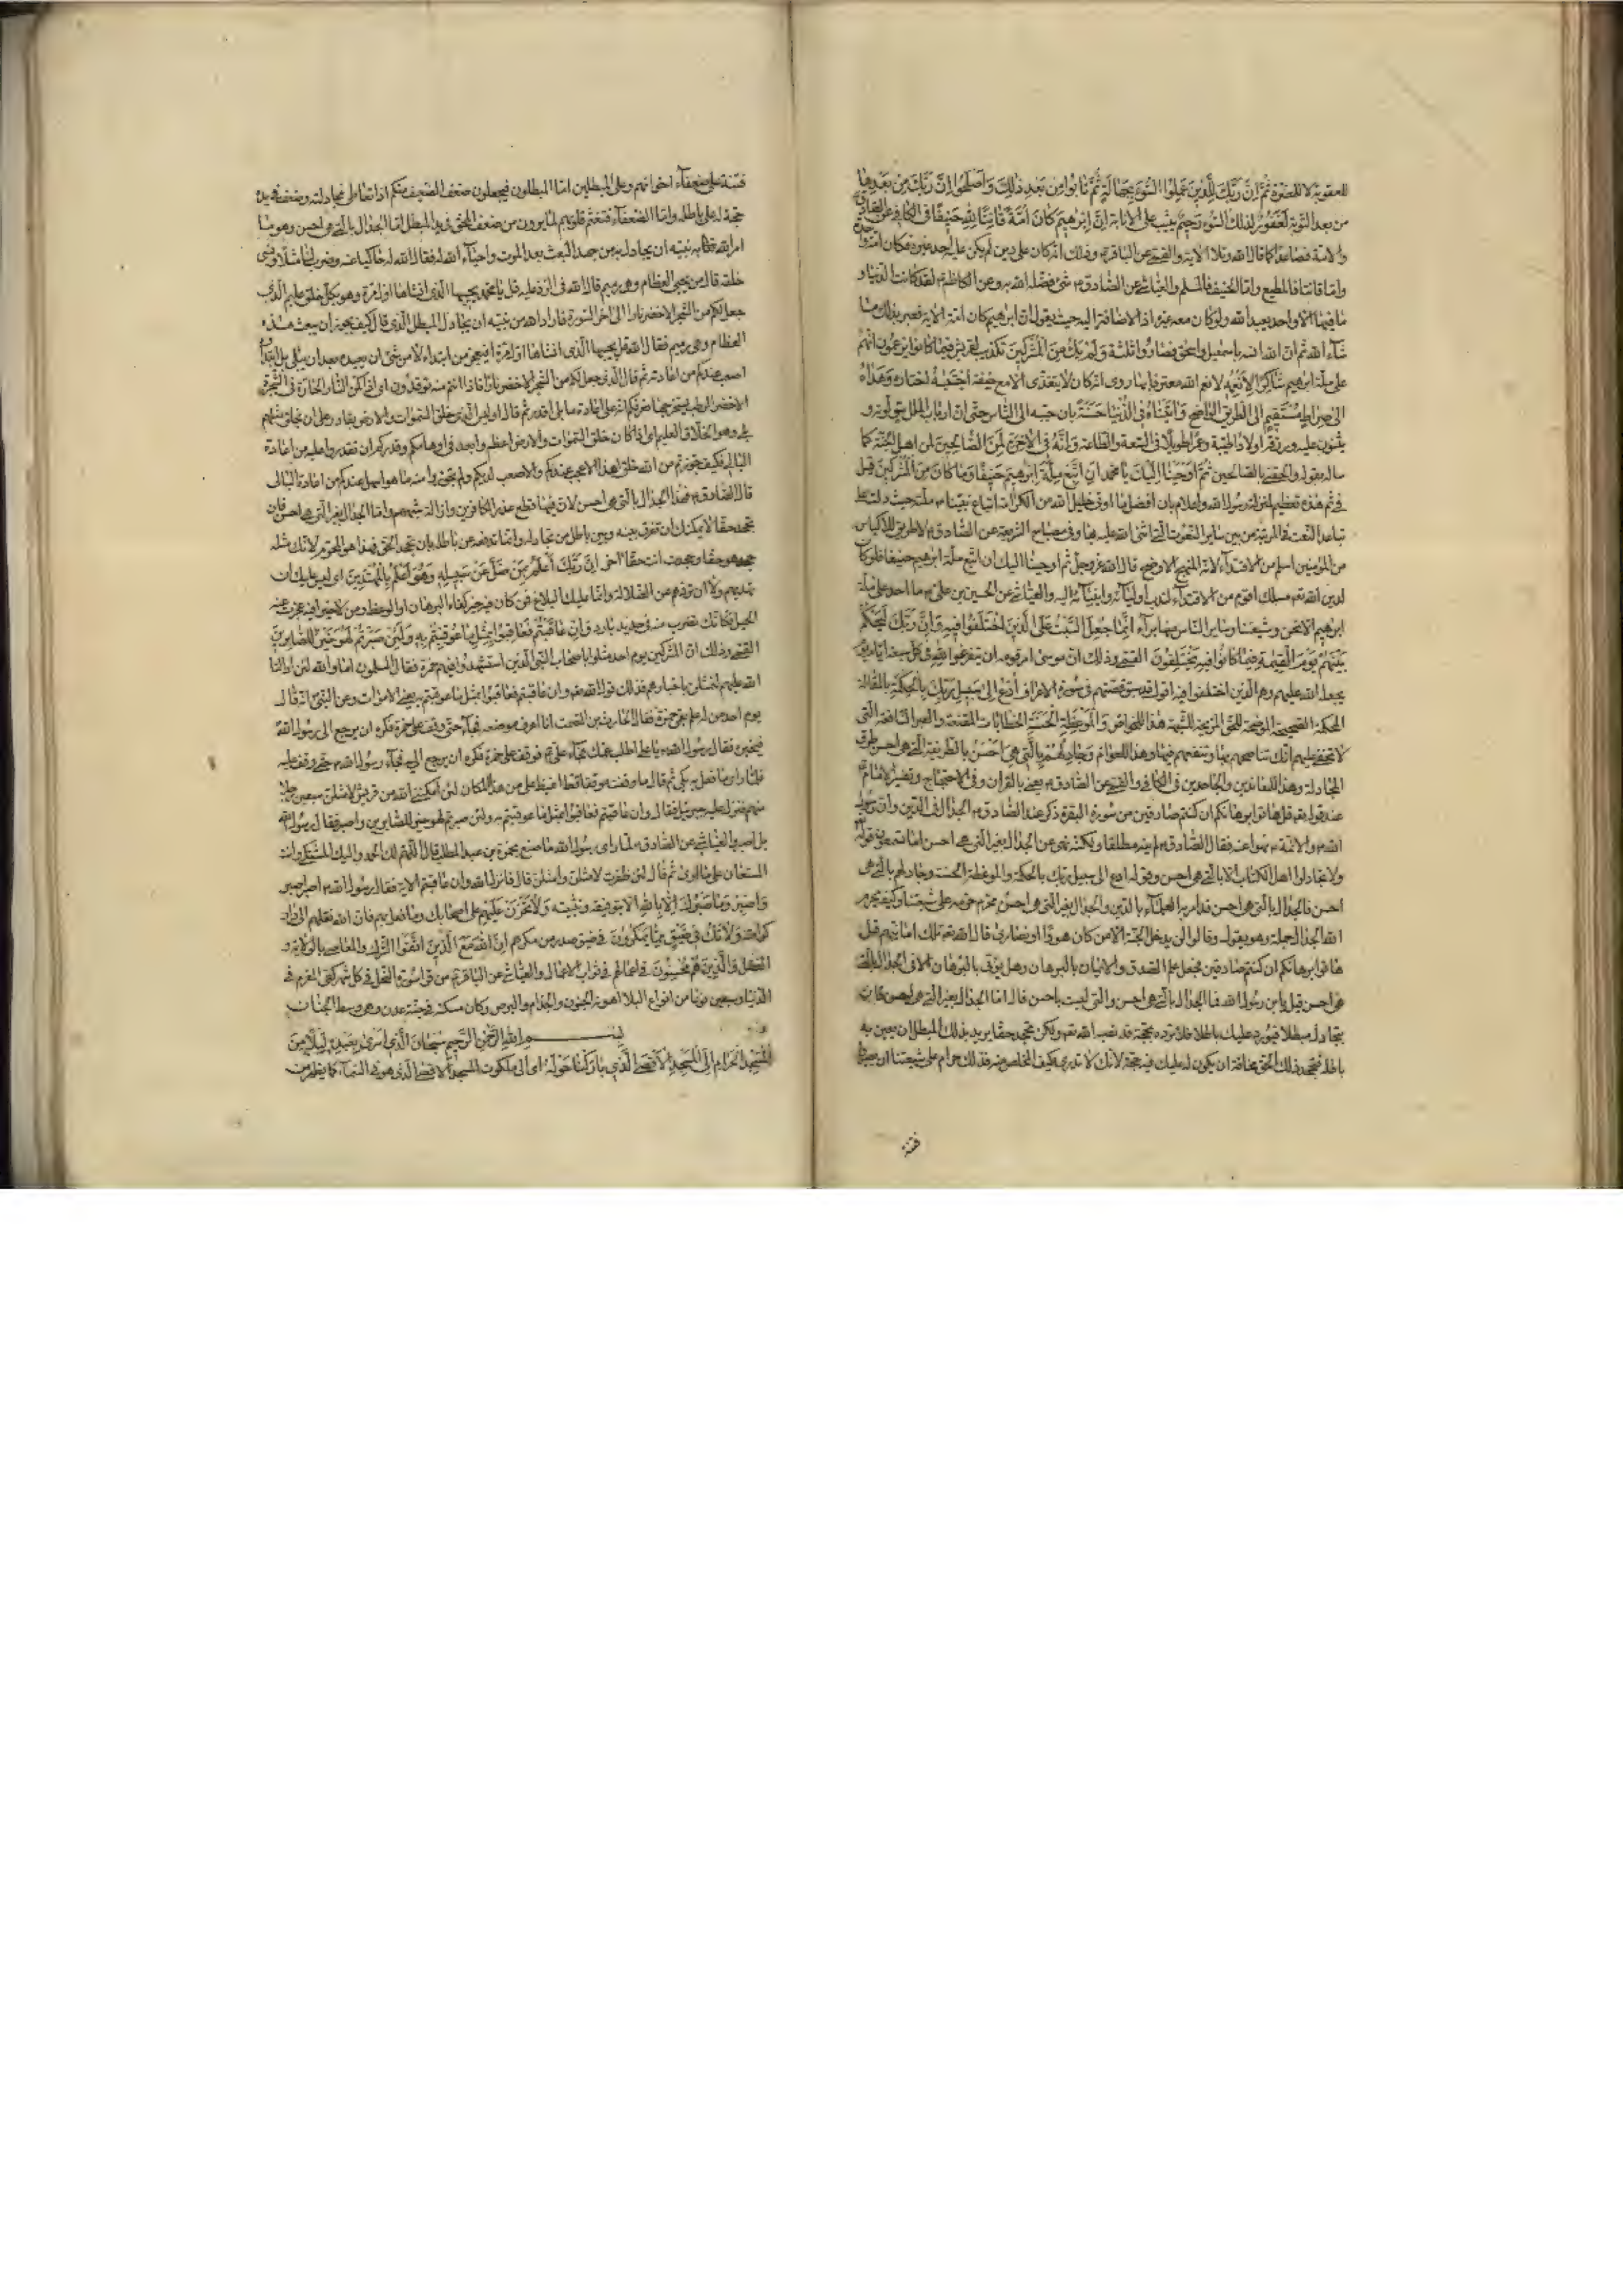 للعقوبة لا للضرورة ثُمَّ اِنَّ رَبَّكَ لِلَّذِينَ عَمِلُوا السُّوءَ بِجَهَالَةٍ ثُمَّ تَابُوا مِن بَعدِ ذٰلِكَ وَاَصْلَحُوا اِنَّ رَبَّكَ مِنْ بَعْدِهَا
من بعد التوبة لَغَفُورٌ لذلك السوء رَحِيمٌ يثيب على الانابة اِنَّ اِبْرٰهِيمَ كَانَ اُمَّةً قَانِتًا لِلّٰهِ حَنِيفًا فى الكافى عن الصادق
والامة فصاعدا كما قال الله وتلا الاية والقمى عن الباقر وذلك انه كان على دين لم يكن عليه احد غيره فكان امة واحدة
واما قانتا فالمطيع واما الحنيف فالمسلم والعياشى عن الصادق شئ فضله الله به وعن الكاظم لقد كانت الدنيا و
ما فيها الا واحد يعبد الله ولو كان معه غيره اذا لاضافه اليه حيث يقول ان ابرهيم كان امة الاية فصبر بذلك ما
شآء الله ثم ان الله انسه باسمعيل واسحق فصاروا ثلثة وَلَمْ يَكُ مِنَ الْمُشْرِكِينَ تكذيب لقريش فيما كانوا يزعمون انهم
على ملة ابرهيم شَاكِرًا لِاَنْعُمِهِ لانعم الله معترفا بها روى انه كان لا يتغدى الا مع ضيفه اجْتَبٰيهُ اختاره وَهَدَاهُ
اِلٰى صِرَاطٍ مُسْتَقِيمٍ الى الطريق الواضح وَاٰتَيْنَاهُ فِى الدُّنْيَا حَسَنَةً بان حببه الى الناس حتى ان ارباب الملل يتولونه و
يثنون عليه ورزقه اولادا طيبة وعمرا طويلا فى السعة والطاعة وَاِنَّهُ فِى الْاٰخِرَةِ لَمِنَ الصَّالِحِينَ لمن اهل الجنة كما
ساله بقوله والحقنى بالصالحين ثُمَّ اَوْحَيْنَا اِلَيْكَ يا محمد اَنِ اتَّبِعْ مِلَّةَ اِبْرٰهِيمَ حَنِيفًا وَمَا كَانَ مِنَ الْمُشْرِكِينَ قيل
فى ثم هذه تعظيم لمنزلة رسول الله واعلام بان افضل ما اوتى خليل الله من الكرامة اتباع نبينا ملته حيث دلت على
تباعد النعت فى المرتبة من بين ساير النعوت التى اثنى الله عليه بها وفى مصباح الشريعة عن الصادق لا طريق للاكياس
من المؤمنين اسلم من الاقتدآء لانه المنهج الاوضح قال الله عز وجل ثم اوحينا اليك ان اتبع ملة ابرهيم حنيفا فلو كان
لدين الله تعم مسلك اقوم من الاقتدآء لندب اوليآئه وانبيآئه اليه والعياشى عن الحسين بن على ما احد على ملة
ابرهيم الا نحن وشيعتنا وساير الناس منها برآء اِنَّمَا جُعِلَ السَّبْتُ عَلَى الَّذِينَ اخْتَلَفُوا فِيهِ وَاِنَّ رَبَّكَ لَيَحْكُمُ
بَيْنَهُمْ يَوْمَ الْقِيٰمَةِ فِيمَا كَانُوا فِيهِ يَخْتَلِفُونَ القمى وذلك ان موسى امر قومه ان يتفرغوا لله فى كل سبعة ايام يوما
يجعله الله عليهم وهم الذين اختلفوا فيه اقول قد سبق قصتهم فى سورة الاعراف اُدْعُ اِلٰى سَبِيلِ رَبِّكَ بِالْحِكْمَةِ بالمقالة
المحكمة الصحيحة الموضحة للحق المزيحة للشبهة هذا للخواص وَالْمَوْعِظَةِ الْحَسَنَةِ الخطابات المقنعة والعبر النافعة التى
لا يخفى عليهم انك تناصحهم بها وتنفعهم فيها وهذا للعوام وَجَادِلْهُمْ بِالَّتِى هِىَ اَحْسَنُ بالطريقة التى هى احسن طرق
المجادلة وهذا للمعاندين والجاحدين فى الكافى والقمى عن الصادق يعنى بالقران وفى الاحتجاج وتفسير الامام
عند قوله تعم قل هاتوا برهانكم ان كنتم صادقين من سورة البقرة ذكر عند الصادق الجدال فى الدين وان رسول
الله والائمة نهوا عنه فقال الصادق لم ينه مطلقا ولكنه نهى عن الجدال بغير التى هى احسن اما تسمعون قوله
ولا تجادلوا اهل الكتاب الا بالتى هى احسن وقوله ادع الى سبيل ربك بالحكمة والموعظة الحسنة وجادلهم بالتى هى
احسن فالجدال بالتى هى احسن قد امر به العلمآء بالدين والجدال بغير التى هى احسن محرم حرمه على شيعتنا وكيف يحرم
الله الجدال جملة وهو يقول وقالوا لن يدخل الجنة الا من كان هودا او نصارى قال الله تعم تلك امانيهم قل
هاتوا برهانكم ان كنتم صادقين فجعل علم الصدق والايمان بالبرهان وهل يؤتى بالبرهان الا فى الجدال بالتى
هى احسن قيل يابن رسول الله فما الجدال بالتى هى احسن والتى ليست باحسن قال اما الجدال بغير التى هى احسن فان
تجادل مبطلا فيورد عليك باطلا فلا ترده بحجة قد نصب الله تعم ولكن تجحد حقا يريد بذلك المبطل ان يعين به
باطله فتجحد ذلك الحق مخافة ان يكون له عليك فيه حجة لانك لا تدرى كيف المخلص منه فذلك حرام على شيعتنا ان يصيروا
فتنة
فتنة على ضعفآء اخوانهم وعلى المبطلين اما المبطلون فيجعلون ضعف الضعيف منكم اذا تعاطى مجادلته وضعف فى يده
حجة له على باطله واما الضعفآء فتغتم قلوبهم لما يرون من ضعف المحق فى يد المبطل اما الجدال بالتى هى احسن وهو ما
امر الله تعالى به نبيه ان يجادل به من جحد البعث بعد الموت واحيآء الله له فقال الله له حاكيا عنه وضرب لنا مثلا ونسى
خلقه قال من يحيى العظام وهى رميم قال الله فى الرد عليه قل يا محمد يحييها الذى انشاها اول مرة وهو بكل خلق عليم الذى
جعل لكم من الشجر الاخضر نارا الى اخر السورة فاراد الله من نبيه ان يجادل المبطل الذى قال كيف يجوز ان يبعث هذه
العظام وهى رميم فقال الله قل يحييها الذى انشاها اول مرة افيعجز من ابتدآء لا من شئ ان يعيده بعد ان يبلى بل ابتداؤه
اصعب عندكم من اعادته ثم قال الذى جعل لكم من الشجر الاخضر نارا فاذا انتم منه توقدون اى اذا كمن النار الحارة فى الشجرة
الاخضر الرطب يستخرجها فعرفكم انه على اعادة ما بلى اقدر ثم قال اوليس الذى خلق السموات والارض بقادر على ان يخلق مثلهم
بلى وهو الخلاق العليم اى اذا كان خلق السموات والارض اعظم وابعد فى اوهامكم وقدركم ان تقدروا عليه من اعادة
البالى فكيف جوزتم من الله خلق هذا الاعجب عندكم والاصعب لديكم ولم تجوزوا منه ما هو اسهل عندكم من اعادة البالى
قال الصادق فهذا الجدال بالتى هى احسن لان فيها قطع عذر الكافرين وازالة شبههم واما الجدال بغير التى هى احسن فان
تجحد حقا لا يمكنك ان تفرق بينه وبين باطل من تجادله وانما تدفعه عن باطله بان تجحد الحق فهذا هو المحرم لانك مثله
جحد هو حقا وجحدت انت حقا اخر اِنَّ رَبَّكَ اَعْلَمُ بِمَنْ ضَلَّ عَنْ سَبِيلِهِ وَهُوَ اَعْلَمُ بِالْمُهْتَدِينَ اى ليس عليك ان
تهديهم ولا ان تردهم عن الضلالة وانما عليك البلاغ فمن كان فيه خير كفاه البرهان او الوعظ ومن لا خير فيه عجزت عنه
الحيل فكانك تضرب منه فى حديد بارد وَاِنْ عَاقَبْتُمْ فَعَاقِبُوا بِمِثْلِ مَا عُوقِبْتُمْ بِهِ وَلَئِنْ صَبَرْتُمْ لَهُوَ خَيْرٌ لِلصَّابِرِينَ
القمى وذلك ان المشركين يوم احد مثلوا باصحاب النبى الذين استشهدوا فيهم حمزة فقال المسلمون اما والله لئن ادالنا
الله عليهم لنمثلن باخيارهم فذلك قول الله تعم وان عاقبتم فعاقبوا بمثل ما عوقبتم به يعنى الاموات وعن النبى انه قال
يوم احد من له علم بعمى حمزة فقال الحارث بن الصمت انا اعرف موضعه فجآء حتى وقف على حمزة فكره ان يرجع الى رسول الله
فيخبره فقال رسول الله يا على اطلب عمك فجآء على فوقف على حمزة فكره ان يرجع اليه فجآء رسول الله حتى وقف عليه
فلما راى ما فعل به بكى ثم قال ما وقفت موقفا قط اغيظ على من هذا المكان لئن امكننى الله من قريش لامثلن سبعين رجلا
منهم فنزل عليه جبرئيل فقال وان عاقبتم فعاقبوا بمثل ما عوقبتم به ولئن صبرتم لهو خير للصابرين واصبر فقال رسول الله
بل اصبر والعياشى عن الصادق لما راى رسول الله ما صنع بحمزة بن عبد المطلب قال اللهم لك الحمد واليك المشتكى وانت
المستعان على ما ارى ثم قال لئن ظفرت لامثلن وامثلن قال فانزل الله وان عاقبتم الاية فقال رسول الله اصبر اصبر
وَاصْبِرْ وَمَا صَبْرُكَ اِلَّا بِاللّٰهِ الا بتوفيقه وتثبيته وَلَا تَحْزَنْ عَلَيْهِمْ على اصحابك وما فعل بهم فان الله نقلهم الى دار
كرامته وَلَا تَكُ فِى ضَيْقٍ مِمَّا يَمْكُرُونَ فى ضيق صدر من مكرهم اِنَّ اللّٰهَ مَعَ الَّذِينَ اتَّقَوْا الشرك والمعاصى بالولاية و
الفضل وَالَّذِينَ هُمْ مُحْسِنُونَ فى اعمالهم فى ثواب الاعمال والعياشى عن الباقر من قرا سورة النحل فى كل شهر كفى المغرم فى
الدنيا وسبعين نوعا من انواع البلا اهونه الجنون والجذام والبرص وكان مسكنه فى جنة عدن وهى وسط الجنان
بسم الله الرَّحْمٰنِ الرَّحِيمِ سُبْحَانَ الَّذِى اَسْرٰى بِعَبْدِهِ لَيْلًا مِنَ
الْمَسْجِدِ الْحَرَامِ اِلَى الْمَسْجِدِ الْاَقْصَى الَّذِى بَارَكْنَا حَوْلَهُ اى الى ملكوت المسجد الاقصى الذى هو فى السمآء كما يظهر من